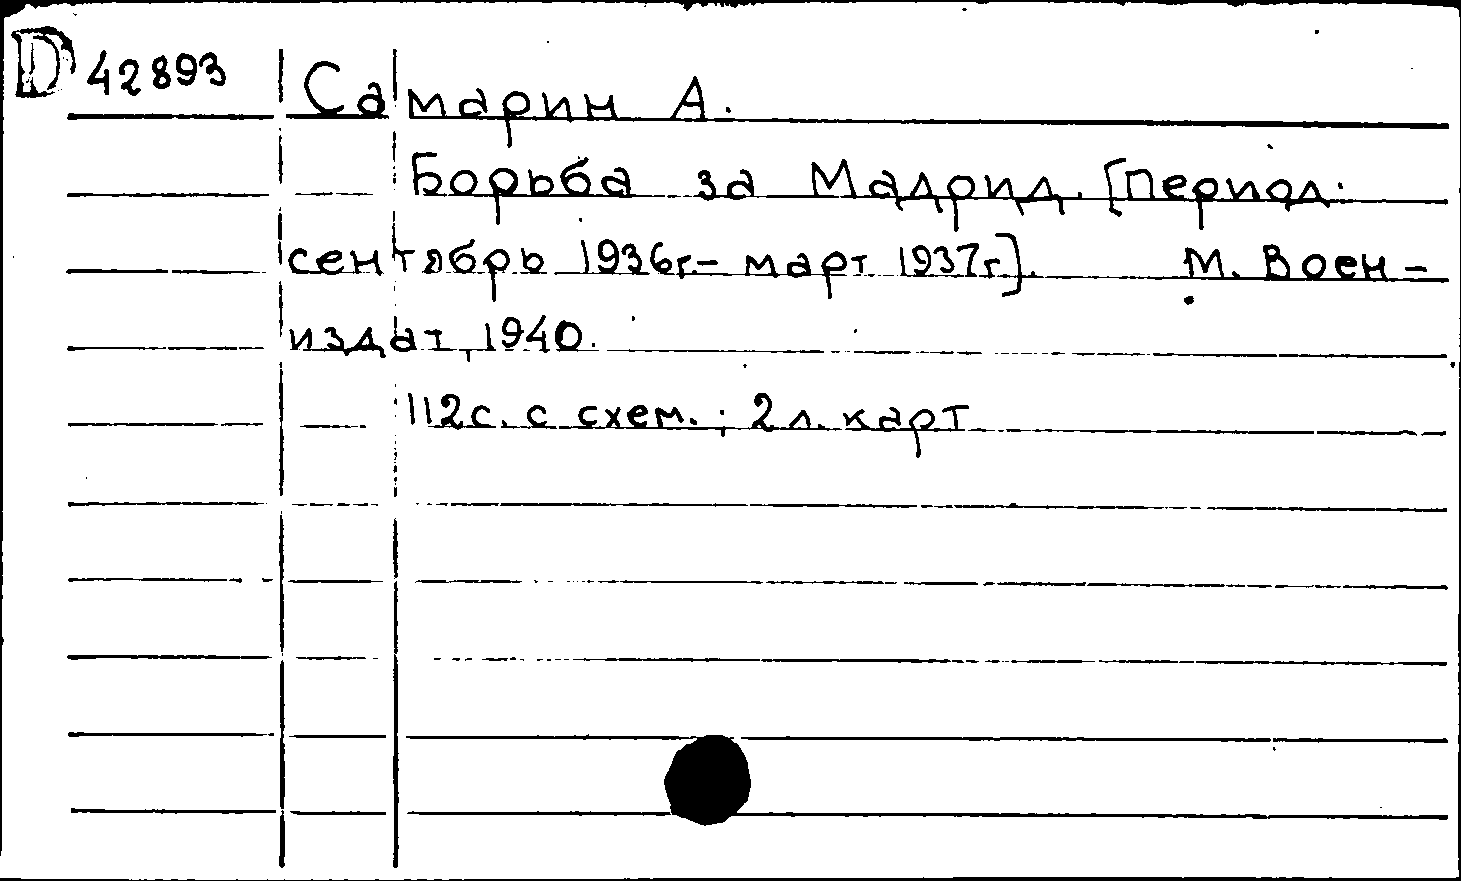 D 42893 Самарин А.
Борьба за Мадрид. [Период:
сентябрь 1936г.- март 1937г.]. М. Воен-
издат, 1940.
112с. с схем.; 2 л. карт